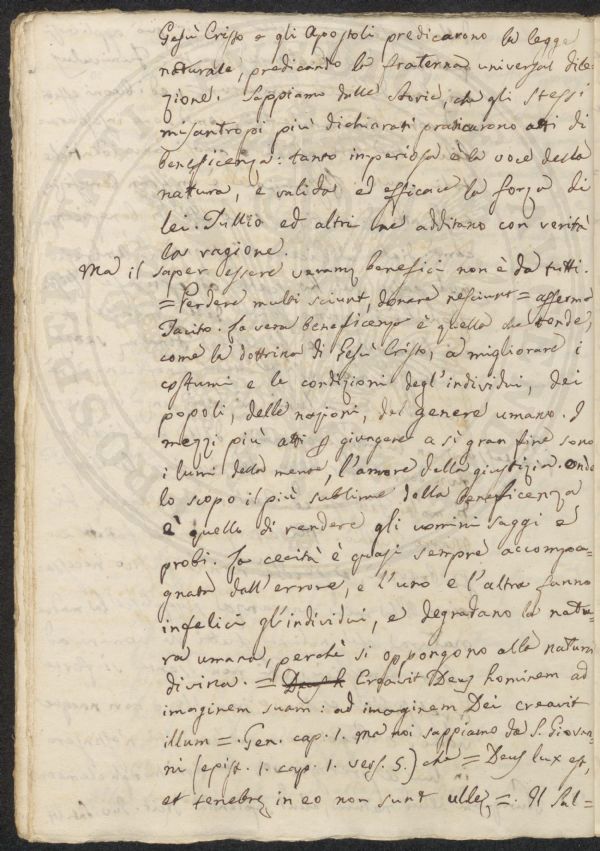 Gesù Cristo e gli Apostoli predicarono la legge
naturale, predicando la fraterna universal dile-
zione. Sappiamo dalle storie, che gli stessi
misantropi più dichiarati praticarono atti di
beneficenza: tanto imperiosa è la voce della
natura, e valida ed efficace la forza di
lei. Tullio ed altri ne additano con verità
la ragione.
Ma il saper essere veramᵉ benefici non è da tutti.
= Perdere multi sciunt, donare nesciunt = afferma
Tacito. La vera beneficenza è quella che tende,
come la dottrina di Gesù Cristo, a migliorare i
costumi e le condizioni degl'individui, dei
popoli, delle nazioni, del genere umano. I
mezzi più atti p giungere a sì gran fine sono
i lumi della mente, l'amore della giustizia. Onde
lo scopo il più sublime della beneficenza
è quello di rendere gli uomini saggi e
probi. La cecità è quasi sempre accompa-
gnata dall'errore, e l'uno e l'altra fanno
infelici gl'individui, e degradano la natu-
ra umana, perchè si oppongono alla natura
divina. = Creavit Deus hominem ad
imaginem suam: ad imaginem Dei creavit
illum =. Gen. cap. 1. Ma noi sappiamo da S. Giovan-
ni (epist. 1. cap. 1. vers. 5.) che = Deus lux est,
et tenebrę in eo non sunt ullę =. Il Sal=